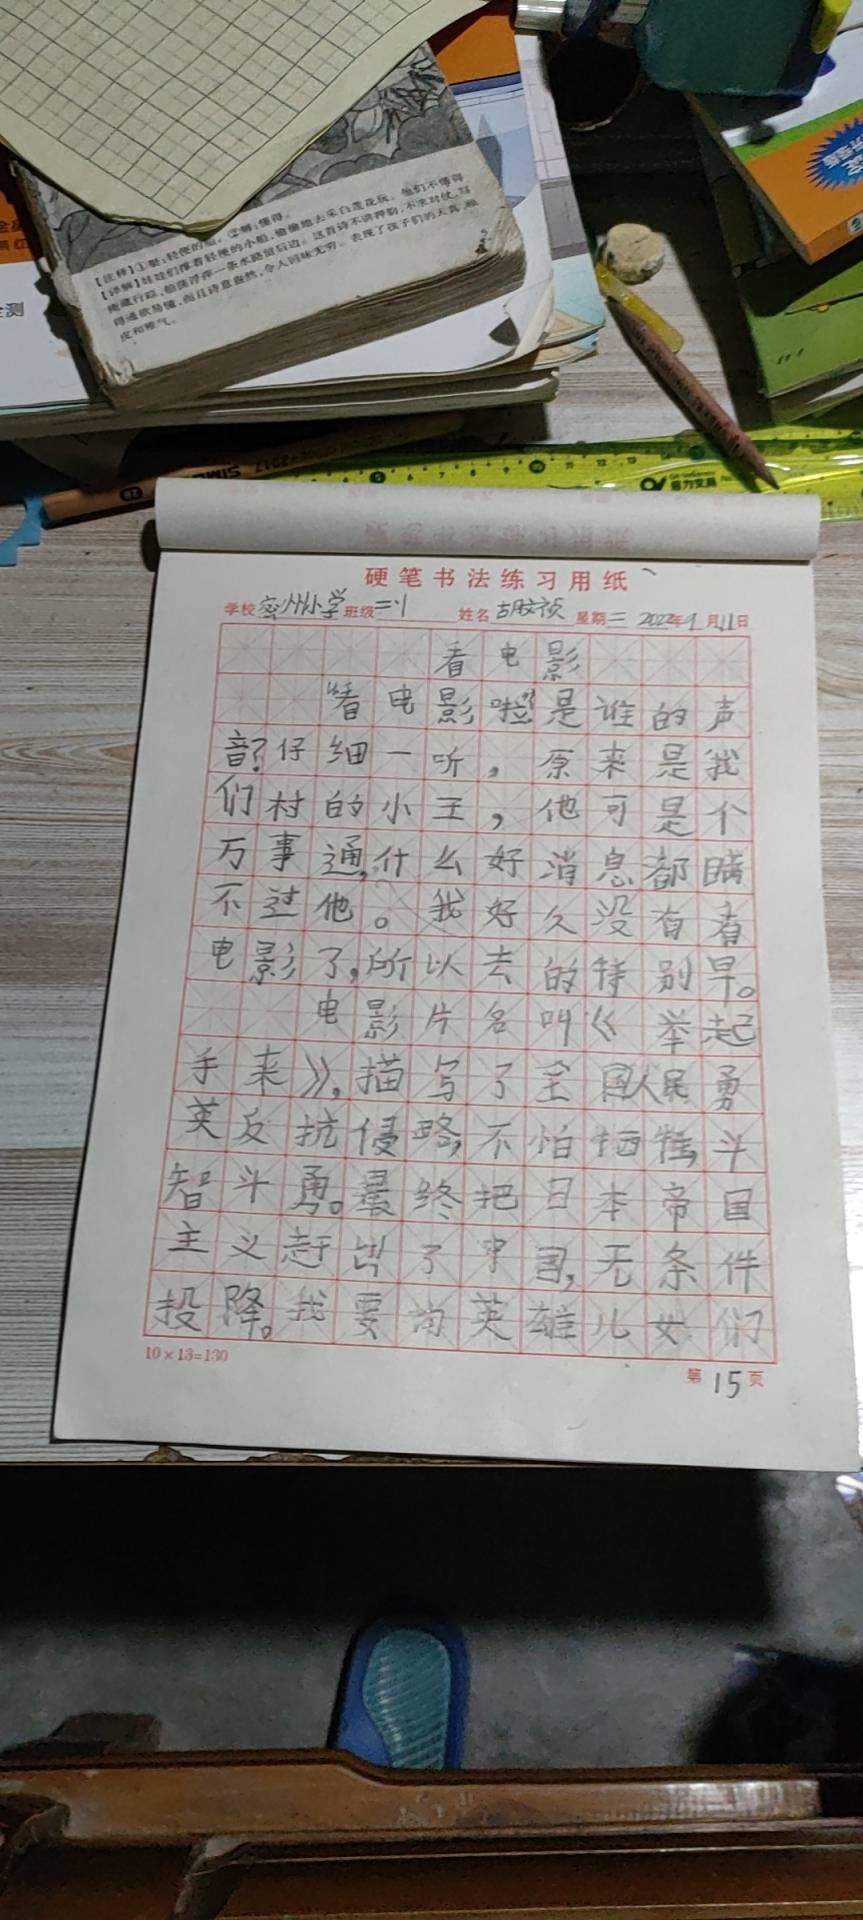 【注释】①艇:轻便的船。②解:懂得。
【详解】娃娃们撑着轻便的小船,偷偷地去采白莲花玩。他们不懂得
掩藏行踪,船荡浮萍一条水路留后边。这首诗不讲押韵,不求对仗,写
得通欲易懂,而且诗意盎然,令人回味无穷。表现了孩子们的天真、顽
皮和稚气。
全测
2B
SIM
2017
硬笔书法练习用纸
学校 密州小学 班级 三·1 姓名 星期 三 2022年9月11日
看电影
“看电影啦!”是谁的声
音?仔细一听,原来是我
们村的小王,他可是个
万事通,什么好消息都瞒
不过他。我好久没有看
电影了,所以去的特别早。
电影片名叫《举起
手来》,描写了全国人民勇
英反抗侵略,不怕牺牲,斗
智斗勇。最终把日本帝国
主义赶出了中国,无条件
投降。我要向英雄儿女们
10×13=130
第15页